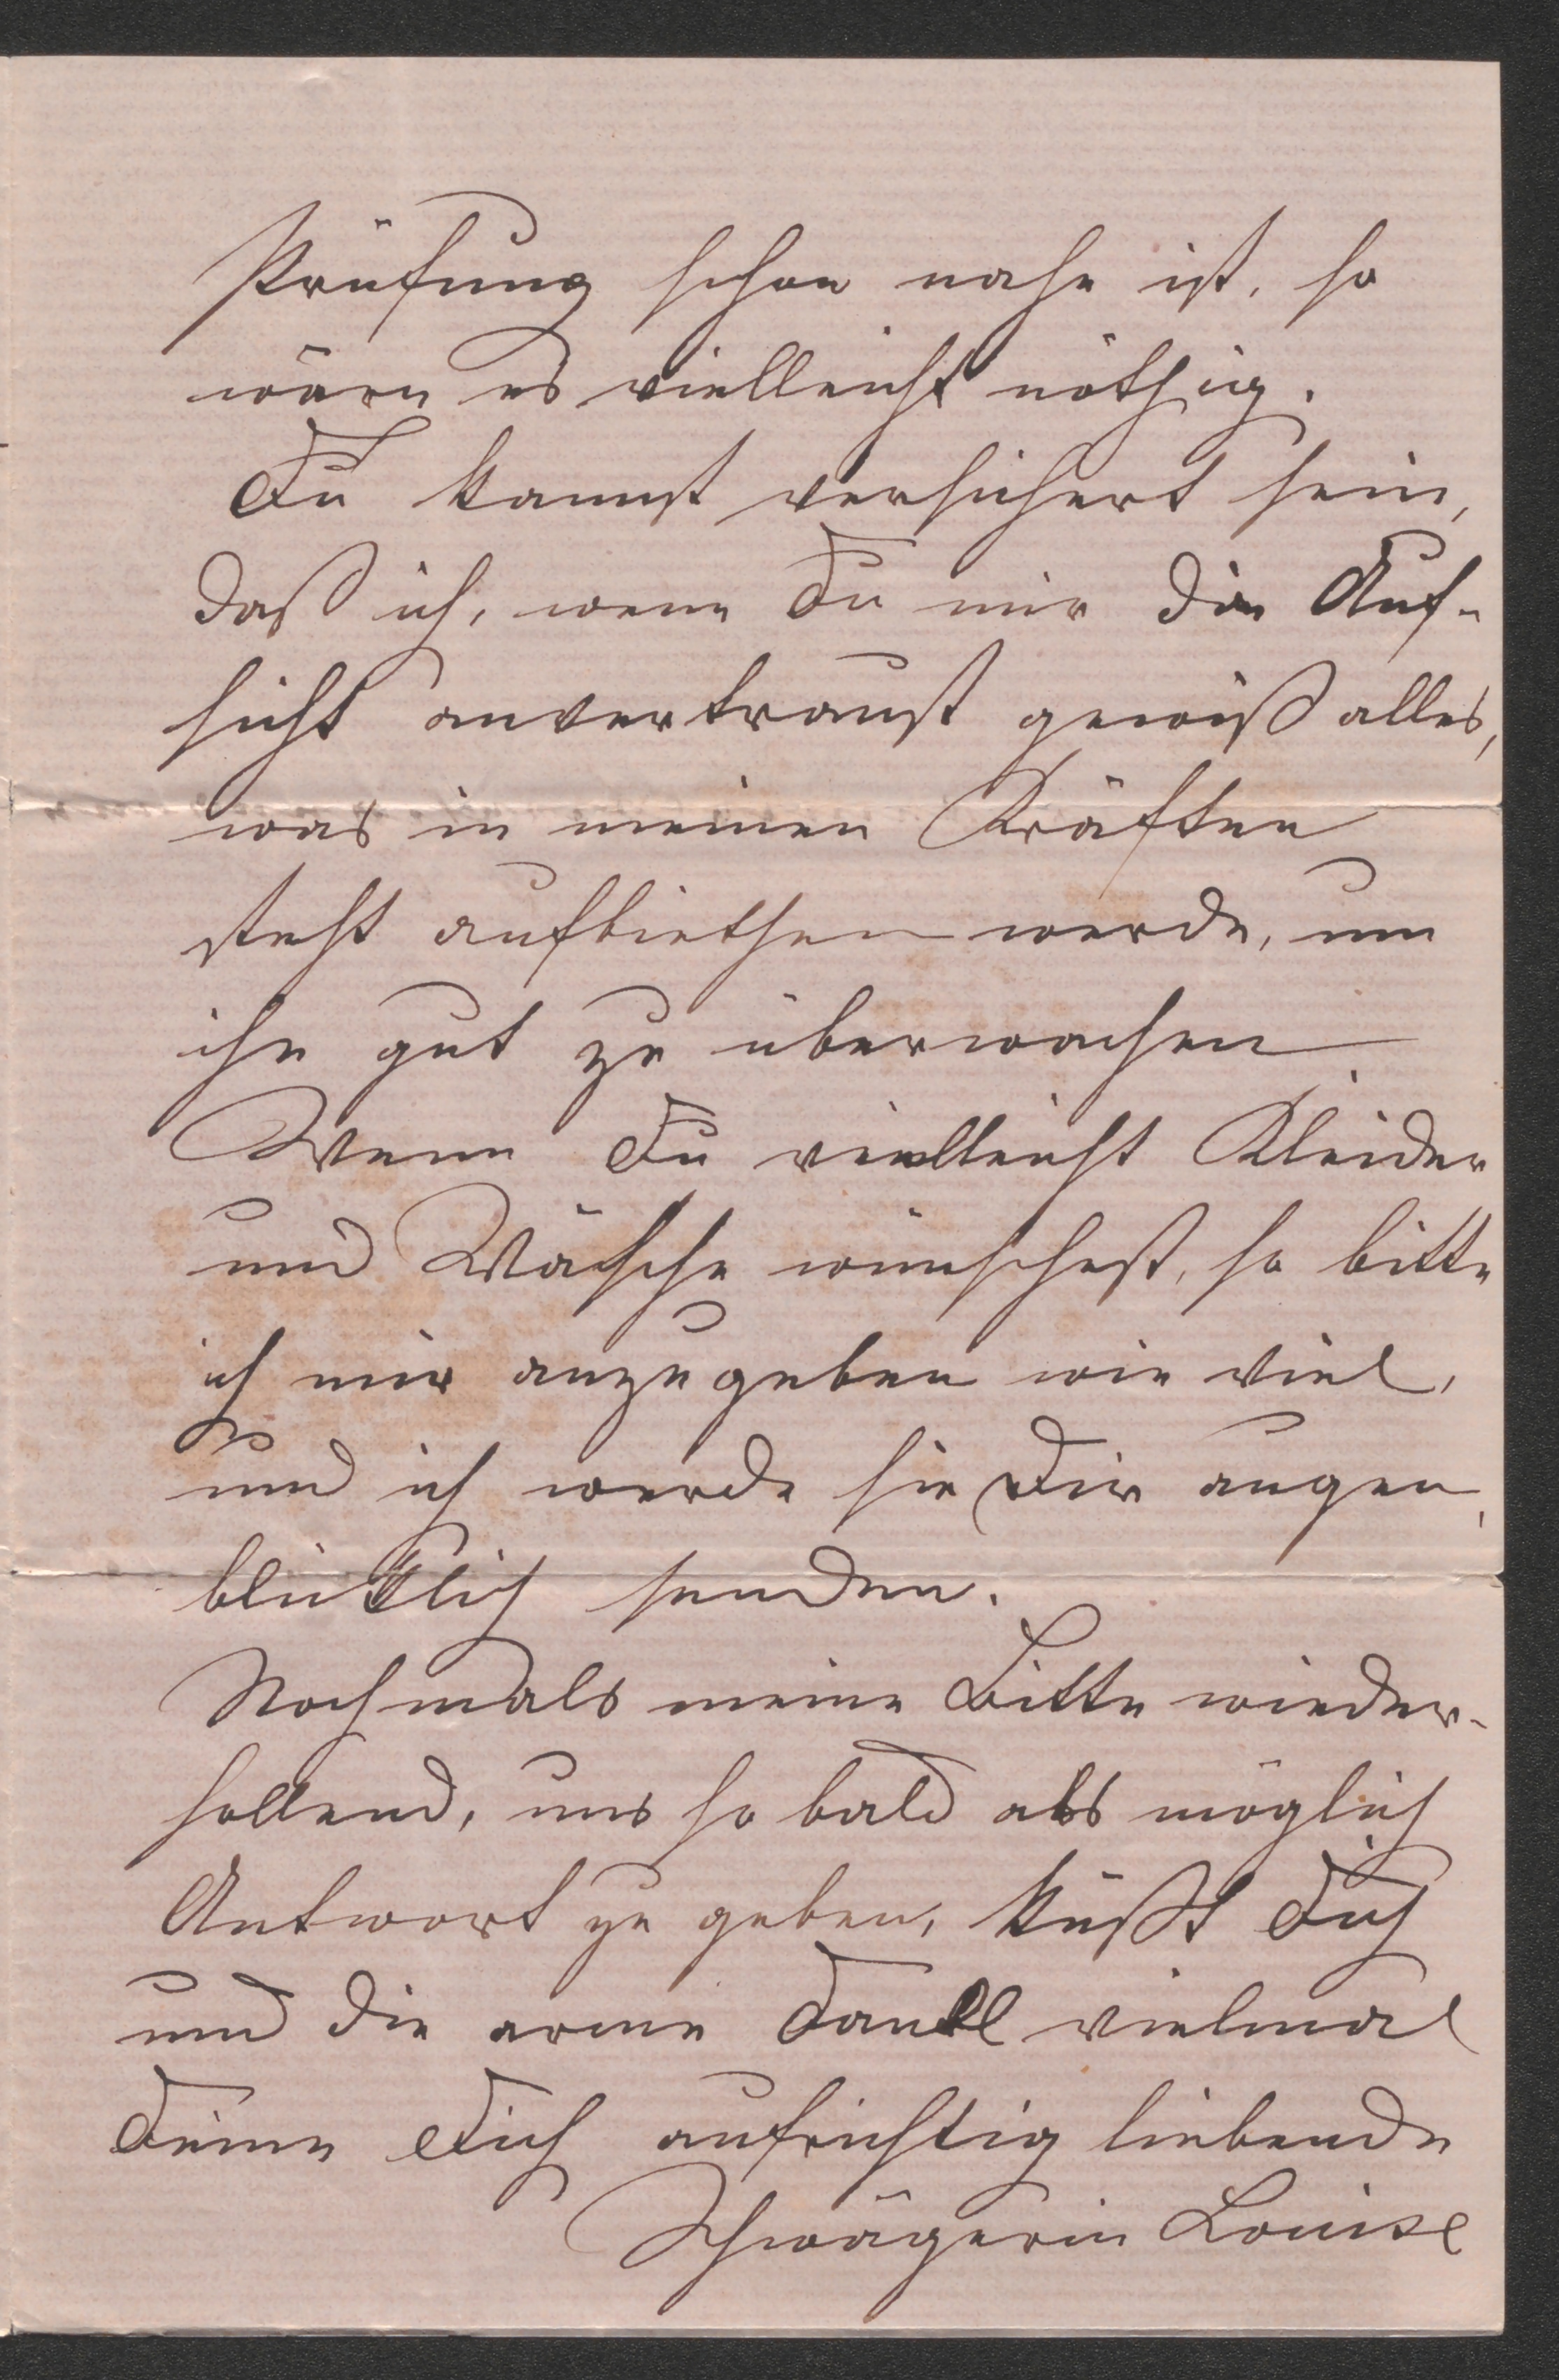 Prüfung schon nahe ist, so
wäre es vielleicht nöthig.
Du kannst versichert sein,
daß ich, wenn Du mir die Auf-
sicht anvertraust gewiß alles,
was in meinen Kräften
steht aufbiethen werde, um
ihn gut zu überwachen.
Wenn Du vielleicht Kleider
und Wäsche wünschest, so bitte
ich mir anzugeben wie viel,
und ich werde sie Dir augen-
blicklich senden.
Nochmals meine Bitte wieder-
hollend, uns so bald als möglich
Antwort zu geben, küßt Dich
und die arme vielmal
Deine Dich aufrichtig liebende
Schwägerin Louise